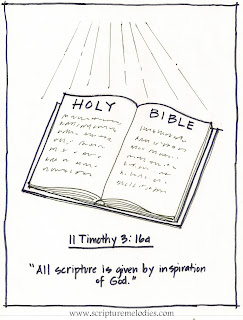 HOLY BIBLE
II Timothy 3:16a
"All scripture is given by inspiration
of God."
www.scripturemelodies.com